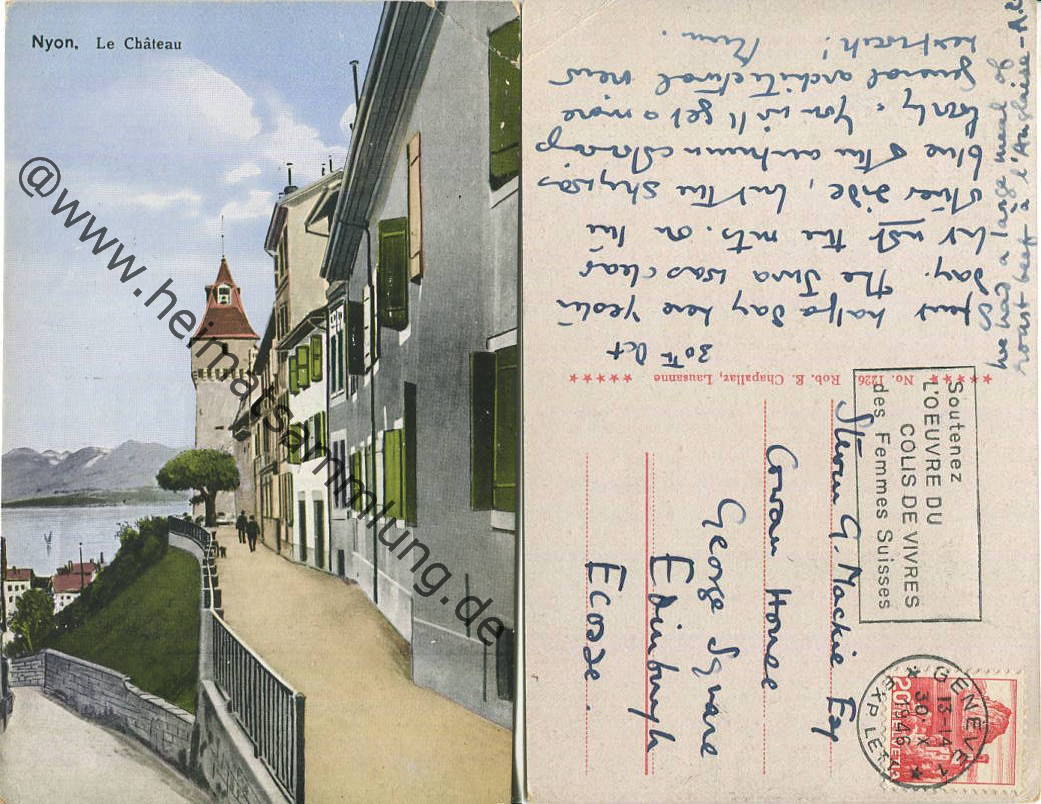 Nyon. Le Château
@www.heimatsammlung.de
30th Oct
Spent half a day here yester
day. The Jura was clear
but not the mts. on the
other side, but the sky was
blue & the autumn colouring
lovely. You will get a more
general architectural view
We had a large meal of
roast beef à l'Anglaise
★★★★★ No. 1226 Rob. E. Chapallaz, Lausanne ★★★★★
Soutenez
L'OEUVRE DU
COLIS DE VIVRES
des Femmes Suisses
Steven G. Mackie Esq
Cowan House
George Square
Edinburgh
Ecosse.
GENÈVE 1
13-14
30. X
1946
EXP. LETT.
20
HELVETIA